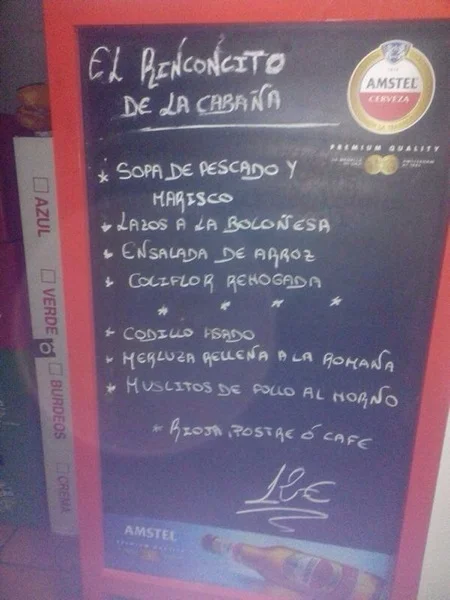 EL RINCONCITO
DE LA CABAÑA
AMSTEL
CERVEZA
PREMIUM QUALITY
* SOPA DE PESCADO Y
MARISCO
* LAZOS A LA BOLOÑESA
* ENSALADA DE ARROZ
* COLIFLOR REHOGADA
* * * *
* CODILLO ASADO
* MERLUZA RELLEÑA A LA ROMAÑA
* MUSLITOS DE POLLO AL HORÑO
* RIOJA, POSTRE Ó CAFE
12€
AMSTEL
AZUL
VERDE
BURDEOS
CREMA